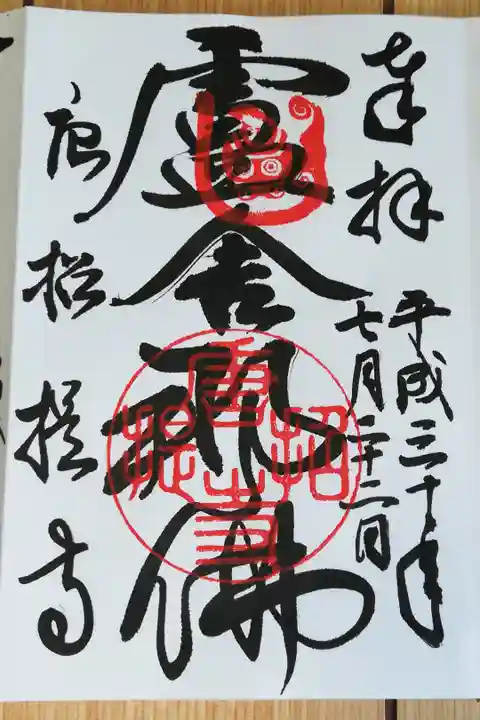 奉拝
平成三十年
七月二十二日
盧舎那佛
唐招提寺
唐招提寺